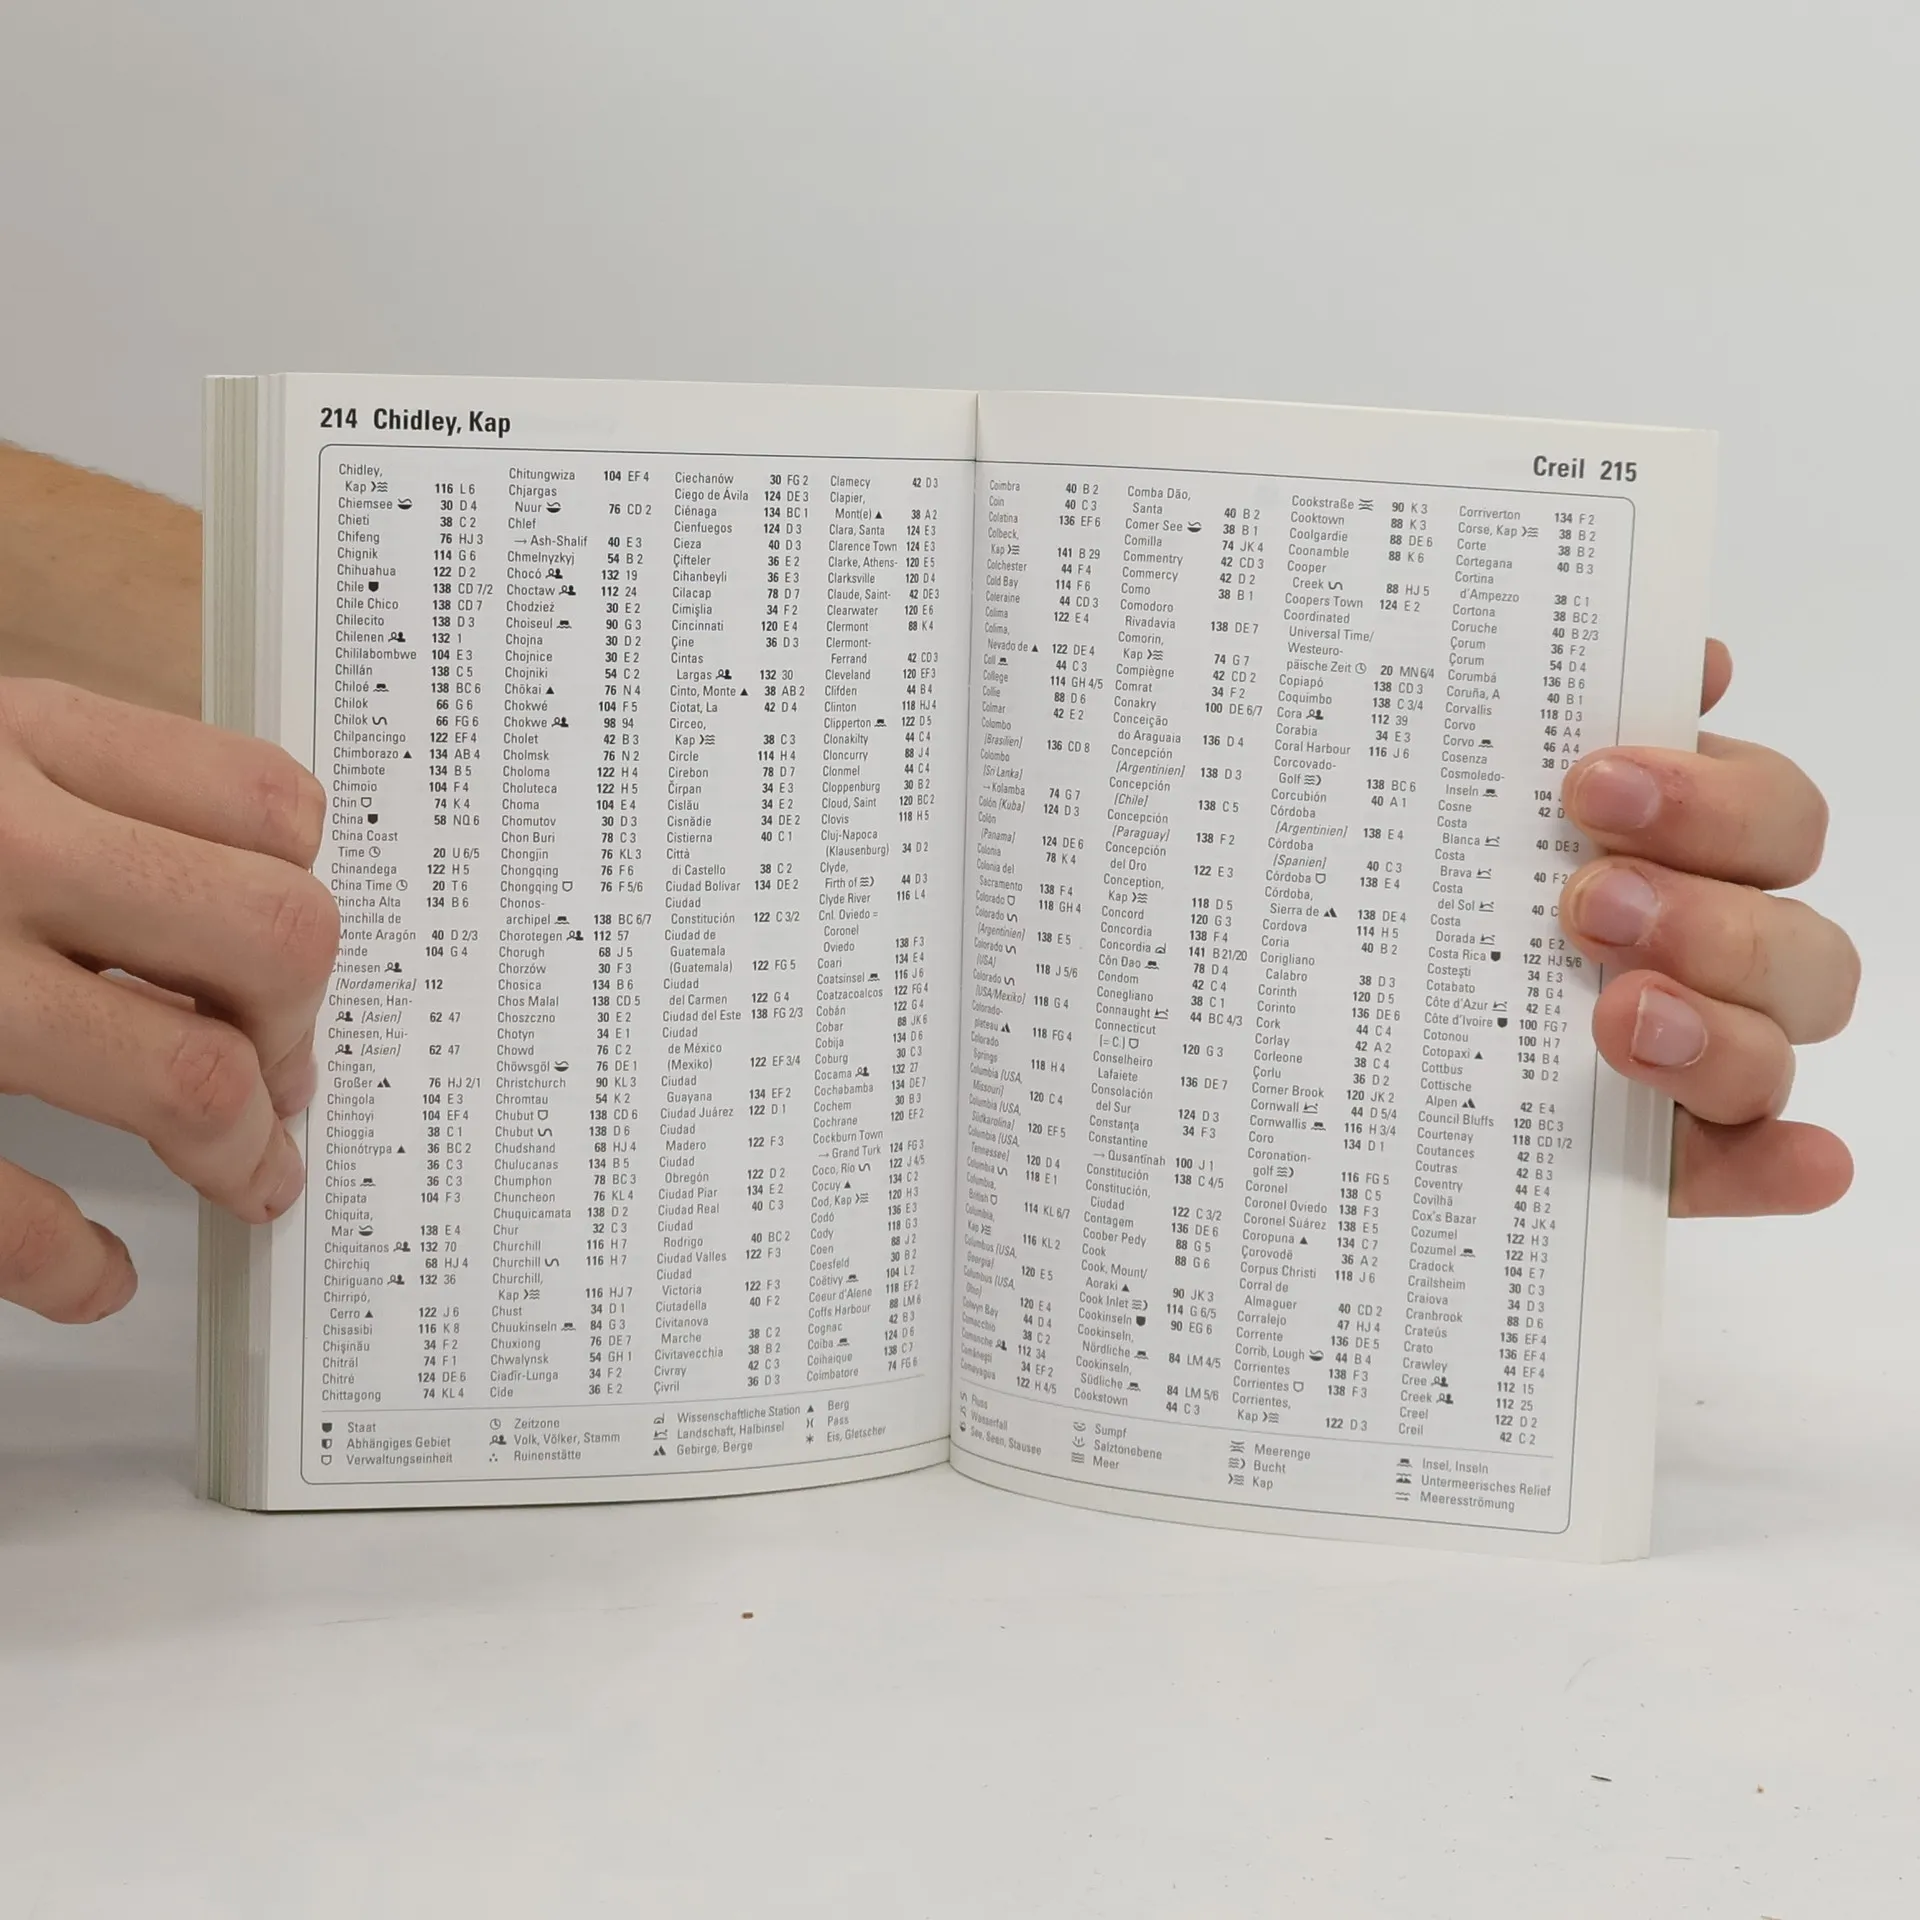 214 Chidley, Kap
Chidley,
Kap 116 L 6
Chiemsee 30 D 4
Chieti 38 C 2
Chifeng 76 HJ 3
Chignik 114 G 6
Chihuahua 122 D 2
Chile 138 CD 7/2
Chile Chico 138 CD 7
Chilecito 138 D 3
Chilenen 132 1
Chililabombwe 104 E 3
Chillán 138 C 5
Chiloé 138 BC 6
Chilok 66 G 6
Chilok 66 FG 6
Chilpancingo 122 EF 4
Chimborazo 134 AB 4
Chimbote 134 B 5
Chimoio 104 F 4
Chin 74 K 4
China 58 NQ 6
China Coast
Time 20 U 6/5
Chinandega 122 H 5
China Time 20 T 6
Chincha Alta 134 B 6
hinchilla de
Monte Aragón 40 D 2/3
hinde 104 G 4
hinesen
[Nordamerika] 112
Chinesen, Han-
[Asien] 62 47
Chinesen, Hui-
[Asien] 62 47
Chingan,
Großer 76 HJ 2/1
Chingola 104 E 3
Chinhoyi 104 EF 4
Chioggia 38 C 1
Chionótrypa 36 BC 2
Chios 36 C 3
Chios 36 C 3
Chipata 104 F 3
Chiquita,
Mar 138 E 4
Chiquitanos 132 70
Chirchiq 68 HJ 4
Chiriguano 132 36
Chirripó,
Cerro 122 J 6
Chisasibi 116 K 8
Chişinău 34 F 2
Chitrāl 74 F 1
Chitré 124 DE 6
Chittagong 74 KL 4
Chitungwiza 104 EF 4
Chjargas
Nuur 76 CD 2
Chlef
→ Ash-Shalif 40 E 3
Chmelnyzkyj 54 B 2
Chocó 132 19
Choctaw 112 24
Chodzież 30 E 2
Choiseul 90 G 3
Chojna 30 D 2
Chojnice 30 E 2
Chojniki 54 C 2
Chōkai 76 N 4
Chokwé 104 F 5
Chokwe 98 94
Cholet 42 B 3
Cholmsk 76 N 2
Choloma 122 H 4
Choluteca 122 H 5
Choma 104 E 4
Chomutov 30 D 3
Chon Buri 78 C 3
Chongjin 76 KL 3
Chongqing 76 F 6
Chongqing 76 F 5/6
Chonos-
archipel 138 BC 6/7
Chorotegen 112 57
Chorugh 68 J 5
Chorzów 30 F 3
Chosica 134 B 6
Chos Malal 138 CD 5
Choszczno 30 E 2
Chotyn 34 E 1
Chowd 76 C 2
Chöwsgöl 76 DE 1
Christchurch 90 KL 3
Chromtau 54 K 2
Chubut 138 CD 6
Chubut 138 D 6
Chudshand 68 HJ 4
Chulucanas 134 B 5
Chumphon 78 BC 3
Chuncheon 76 KL 4
Chuquicamata 138 D 2
Chur 32 C 3
Churchill 116 H 7
Churchill 116 H 7
Churchill,
Kap 116 HJ 7
Chust 34 D 1
Chuukinseln 84 G 3
Chuxiong 76 DE 7
Chwalynsk 54 GH 1
Ciadîr-Lunga 34 F 2
Cide 36 E 2
Ciechanów 30 FG 2
Ciego de Ávila 124 DE 3
Ciénaga 134 BC 1
Cienfuegos 124 D 3
Cieza 40 D 3
Çifteler 36 E 2
Cihanbeyli 36 E 3
Cilacap 78 D 7
Cimişlia 34 F 2
Cincinnati 120 E 4
Çine 36 D 3
Cintas
Largas 132 30
Cinto, Monte 38 AB 2
Ciotat, La 42 D 4
Circeo,
Kap 38 C 3
Circle 114 H 4
Cirebon 78 D 7
Čirpan 34 E 3
Cislău 34 E 2
Cisnădie 34 DE 2
Cistierna 40 C 1
Città
di Castello 38 C 2
Ciudad Bolívar 134 DE 2
Ciudad
Constitución 122 C 3/2
Ciudad de
Guatemala
(Guatemala) 122 FG 5
Ciudad
del Carmen 122 G 4
Ciudad del Este 138 FG 2/3
Ciudad
de México
(Mexiko) 122 EF 3/4
Ciudad
Guayana 134 EF 2
Ciudad Juárez 122 D 1
Ciudad
Madero 122 F 3
Ciudad
Obregón 122 D 2
Ciudad Piar 134 E 2
Ciudad Real 40 C 3
Ciudad
Rodrigo 40 BC 2
Ciudad Valles 122 F 3
Ciudad
Victoria 122 F 3
Ciutadella 40 F 2
Civitanova
Marche 38 C 2
Civitavecchia 38 B 2
Civray 42 C 3
Çivril 36 D 3
Clamecy 42 D 3
Clapier,
Mont(e) 38 A 2
Clara, Santa 124 E 3
Clarence Town 124 E 3
Clarke, Athens- 120 E 5
Clarksville 120 D 4
Claude, Saint- 42 DE 3
Clearwater 120 E 6
Clermont 88 K 4
Clermont-
Ferrand 42 CD 3
Cleveland 120 EF 3
Clifden 44 B 4
Clinton 118 HJ 4
Clipperton 122 D 5
Clonakilty 44 C 4
Cloncurry 88 J 4
Clonmel 44 C 4
Cloppenburg 30 B 2
Cloud, Saint 120 BC 2
Clovis 118 H 5
Cluj-Napoca
(Klausenburg) 34 D 2
Clyde,
Firth of 44 D 3
Clyde River 116 L 4
Cnl. Oviedo =
Coronel
Oviedo 138 F 3
Coari 134 E 4
Coatsinsel 116 J 6
Coatzacoalcos 122 FG 4
Cobán 122 G 4
Cobar 88 JK 6
Cobija 134 D 6
Coburg 30 C 3
Cocama 132 27
Cochabamba 134 DE 7
Cochem 30 B 3
Cochrane 120 EF 2
Cockburn Town
→ Grand Turk 124 FG 3
Coco, Rio 122 J 4/5
Cocuy 134 C 2
Cod, Kap 120 H 3
Codó 136 E 3
Cody 118 G 3
Coen 88 J 2
Coesfeld 30 B 2
Coëtivy 104 L 2
Coeur d'Alene 118 EF 2
Coffs Harbour 88 LM 6
Cognac 42 B 3
Coiba 124 D 6
Coihaique 138 C 7
Coimbatore 74 FG 6
Staat
Abhängiges Gebiet
Verwaltungseinheit
Zeitzone
Volk, Völker, Stamm
Ruinenstätte
Wissenschaftliche Station
Landschaft, Halbinsel
Gebirge, Berge
Berg
Pass
Eis, Gletscher
Creil 215
Coimbra 40 B 2
Coin 40 C 3
Colatina 136 EF 6
Colbeck,
Kap 141 B 29
Colchester 44 F 4
Cold Bay 114 F 6
Coleraine 44 CD 3
Colima 122 E 4
Colima,
Nevado de 122 DE 4
Coll 44 C 3
College 114 GH 4/5
Collie 88 D 6
Colmar 42 E 2
Colombo
[Brasilien] 136 CD 8
Colombo
[Sri Lanka]
→ Kolamba 74 G 7
Colón [Kuba] 124 D 3
Colón
[Panama] 124 DE 6
Colonia 78 K 4
Colonia del
Sacramento 138 F 4
Colorado 118 GH 4
Colorado
[Argentinien] 138 E 5
Colorado
[USA] 118 J 5/6
Colorado
[USA/Mexiko] 118 G 4
Colorado-
plateau 118 FG 4
Colorado
Springs 118 H 4
Columbia [USA,
Missouri] 120 C 4
Columbia [USA,
Südkarolina] 120 EF 5
Columbia [USA,
Tennessee] 120 D 4
Columbia 118 E 1
Columbia,
British 114 KL 6/7
Columbia,
Kap 116 KL 2
Columbus [USA,
Georgia] 120 E 5
Columbus [USA,
Ohio] 120 E 4
Colwyn Bay 44 D 4
Comacchio 38 C 2
Comanche 112 34
Comăneşti 34 EF 2
Comayagua 122 H 4/5
Comba Dão,
Santa 40 B 2
Comer See 38 B 1
Comilla 74 JK 4
Commentry 42 CD 3
Commercy 42 D 2
Como 38 B 1
Comodoro
Rivadavia 138 DE 7
Comorin,
Kap 74 G 7
Compiègne 42 CD 2
Comrat 34 F 2
Conakry 100 DE 6/7
Conceição
do Araguaia 136 D 4
Concepción
[Argentinien] 138 D 3
Concepción
[Chile] 138 C 5
Concepción
[Paraguay] 138 F 2
Concepción
del Oro 122 E 3
Conception,
Kap 118 D 5
Concord 120 G 3
Concordia 138 F 4
Concordia 141 B 21/20
Côn Dao 78 D 4
Condom 42 C 4
Conegliano 38 C 1
Connaught 44 BC 4/3
Connecticut
[= C.] 120 G 3
Conselheiro
Lafaiete 136 DE 7
Consolación
del Sur 124 D 3
Constanţa 34 F 3
Constantine
→ Qusantinah 100 J 1
Constitución 138 C 4/5
Constitución,
Ciudad 122 C 3/2
Contagem 136 DE 6
Coober Pedy 88 G 5
Cook 88 G 6
Cook, Mount/
Aoraki 90 JK 3
Cook Inlet 114 G 6/5
Cookinseln 90 EG 6
Cookinseln,
Nördliche 84 LM 4/5
Cookinseln,
Südliche 84 LM 5/6
Cookstown 44 C 3
Cookstraße 90 K 3
Cooktown 88 K 3
Coolgardie 88 DE 6
Coonamble 88 K 6
Cooper
Creek 88 HJ 5
Coopers Town 124 E 2
Coordinated
Universal Time/
Westeuro-
päische Zeit 20 MN 6/4
Copiapó 138 CD 3
Coquimbo 138 C 3/4
Cora 112 39
Corabia 34 E 3
Coral Harbour 116 J 6
Corcovado-
Golf 138 BC 6
Corcubión 40 A 1
Córdoba
[Argentinien] 138 E 4
Córdoba
[Spanien] 40 C 3
Córdoba 138 E 4
Córdoba,
Sierra de 138 DE 4
Cordova 114 H 5
Coria 40 B 2
Corigliano
Calabro 38 D 3
Corinth 120 D 5
Corinto 136 DE 6
Cork 44 C 4
Corlay 42 A 2
Corleone 38 C 4
Çorlu 36 D 2
Corner Brook 120 JK 2
Cornwall 44 D 5/4
Cornwallis 116 H 3/4
Coro 134 D 1
Coronation-
golf 116 FG 5
Coronel 138 C 5
Coronel Oviedo 138 F 3
Coronel Suárez 138 E 5
Coropuna 134 C 7
Çorovodë 36 A 2
Corpus Christi 118 J 6
Corral de
Almaguer 40 CD 2
Corralejo 47 HJ 4
Corrente 136 DE 5
Corrib, Lough 44 B 4
Corrientes 138 F 3
Corrientes 138 F 3
Corrientes,
Kap 122 D 3
Corriverton 134 F 2
Corse, Kap 38 B 2
Corte 38 B 2
Cortegana 40 B 3
Cortina
d'Ampezzo 38 C 1
Cortona 38 BC 2
Coruche 40 B 2/3
Çorum 36 F 2
Çorum 54 D 4
Corumbá 136 B 6
Coruña, A 40 B 1
Corvallis 118 D 3
Corvo 46 A 4
Corvo 46 A 4
Cosenza 38 D
Cosmoledo-
Inseln 104
Cosne 42 D
Costa
Blanca 40 DE 3
Costa
Brava 40 F 2
Costa
del Sol 40 C
Costa
Dorada 40 E 2
Costa Rica 122 HJ 5/6
Costeşti 34 E 3
Cotabato 78 G 4
Côte d'Azur 42 E 4
Côte d'Ivoire 100 FG 7
Cotonou 100 H 7
Cotopaxi 134 B 4
Cottbus 30 D 2
Cottische
Alpen 42 E 4
Council Bluffs 120 BC 3
Courtenay 118 CD 1/2
Coutances 42 B 2
Coutras 42 B 3
Coventry 44 E 4
Covilhã 40 B 2
Cox's Bazar 74 JK 4
Cozumel 122 H 3
Cozumel 122 H 3
Cradock 104 E 7
Crailsheim 30 C 3
Craiova 34 D 3
Cranbrook 88 D 6
Crateús 136 EF 4
Crato 136 EF 4
Crawley 44 EF 4
Cree 112 15
Creek 112 25
Creel 122 D 2
Creil 42 C 2
Fluss
Wasserfall
See, Seen, Stausee
Sumpf
Salztonebene
Meer
Meerenge
Bucht
Kap
Insel, Inseln
Untermeerisches Relief
Meeresströmung